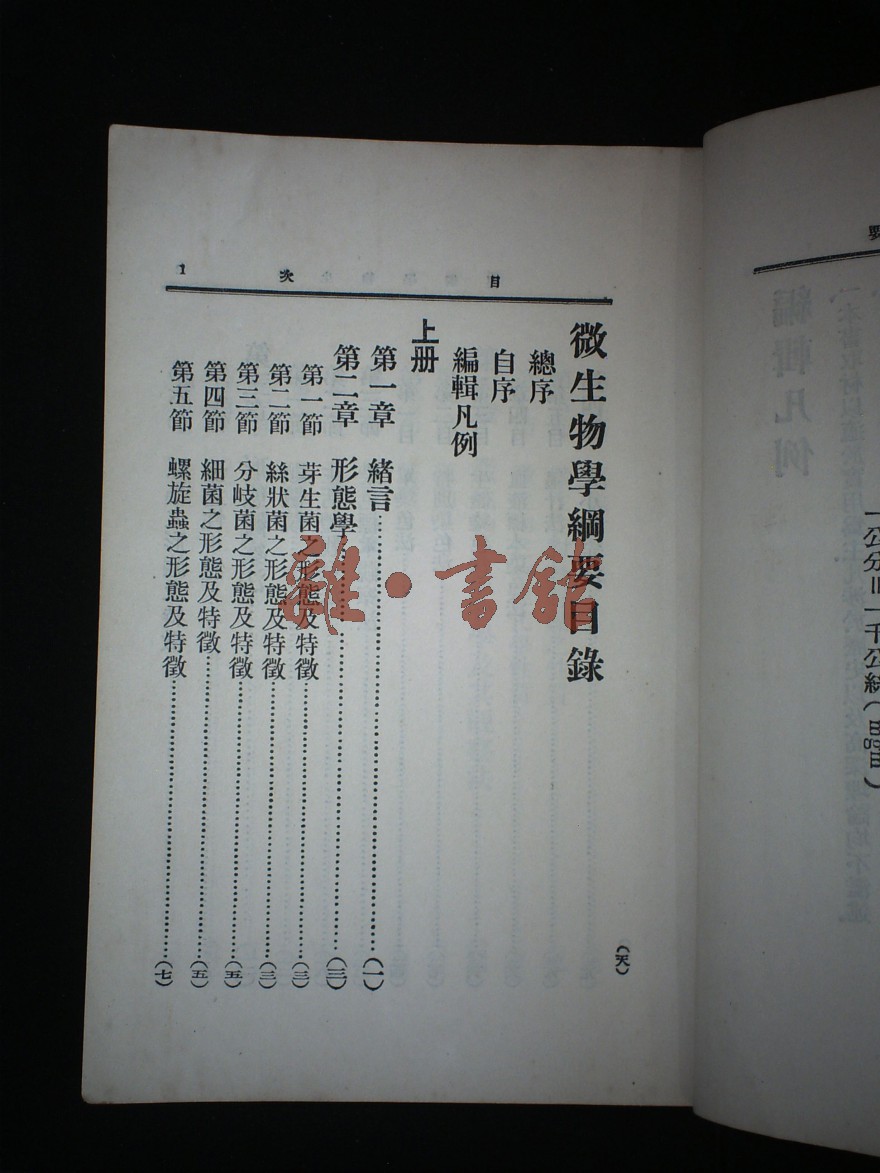 目次 1
微生物學綱要目錄
總序
自序
編輯凡例
上册
第一章 緒言……(一)
第二章 形態學……(三)
第一節 芽生菌之形態及特徵……(三)
第二節 絲狀菌之形態及特徵……(三)
第三節 分岐菌之形態及特徵……(五)
第四節 細菌之形態及特徵……(五)
第五節 螺旋蟲之形態及特徵……(七)
(天)
雜·書館
編輯凡例